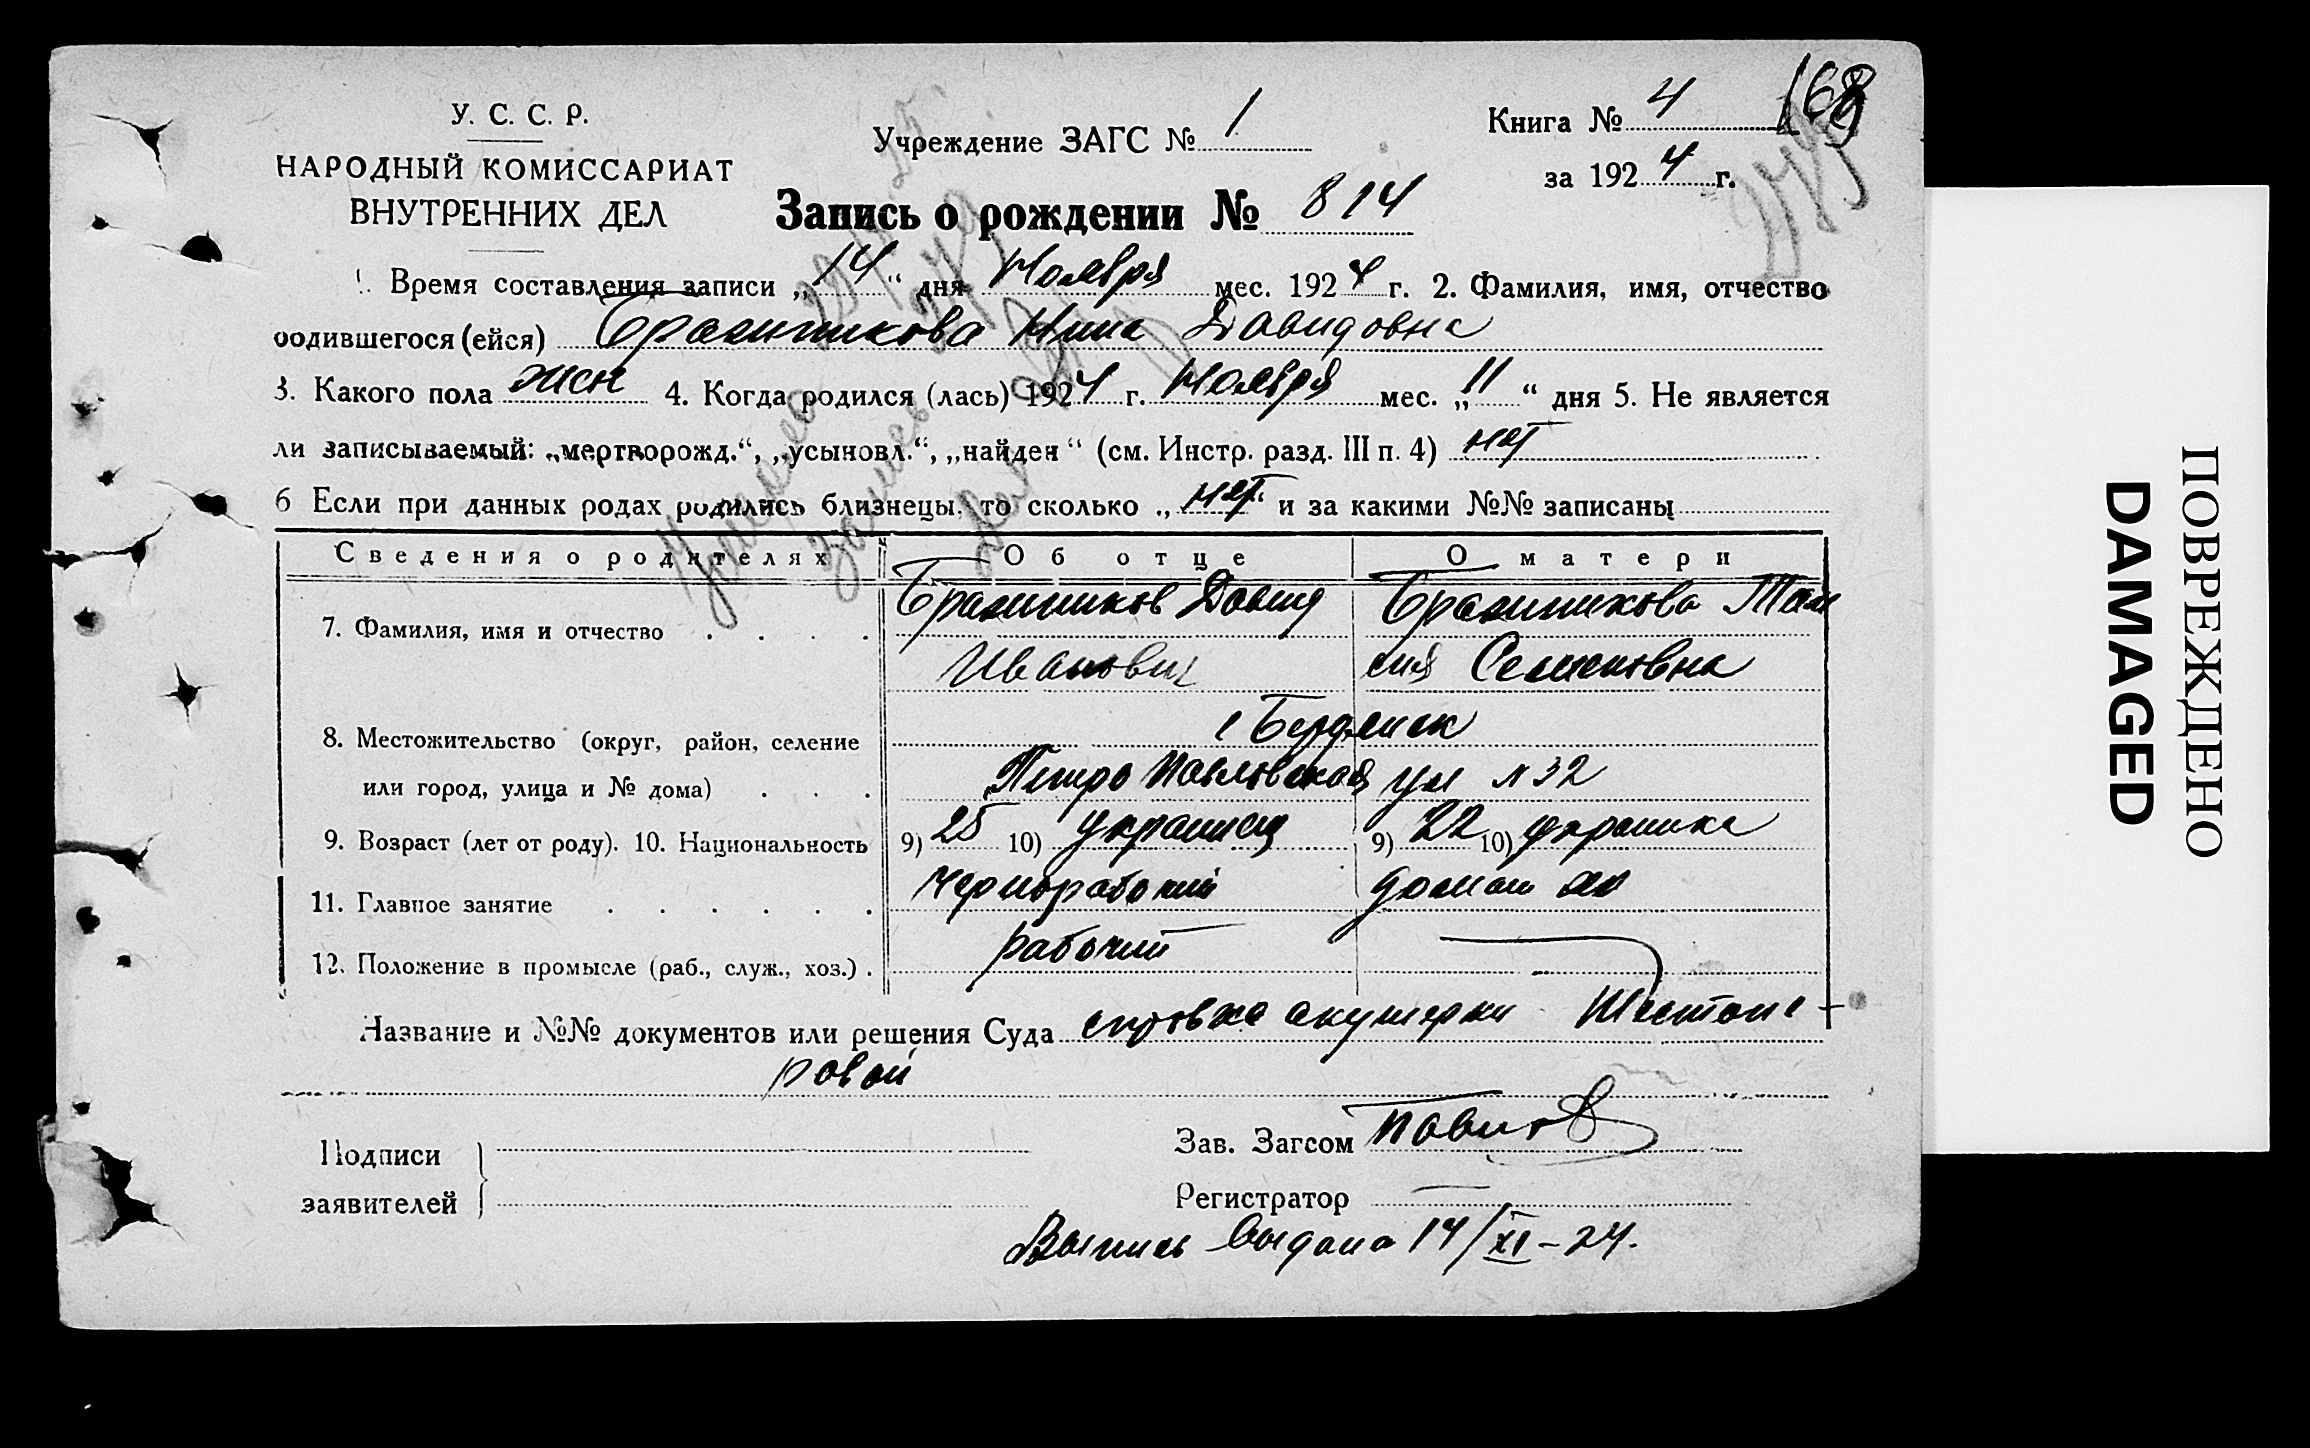 У. С. С. Р.
НАРОДНЫЙ КОМИССАРИАТ
ВНУТРЕННИХ ДЕЛ
Учреждение ЗАГС № 1
Книга № 4
168
за 1924 г.
Запись о рождении № 814
1. Время составления записи „14“ дня Ноября мес. 1924 г. 2. Фамилия, имя, отчество
родившегося (ейся) Бражникова Нина Давидовна
3. Какого пола жен 4. Когда родился (лась) 1924 г. Ноября мес. „11“ дня 5. Не является
ли записываемый: „мертворожд.“, „усыновл.“, „найден“ (см. Инстр. разд. III п. 4) нет
6 Если при данных родах родились близнецы, то сколько „нет“ и за какими №№ записаны
Сведения о родителях Об отце О матери
7. Фамилия, имя и отчество Бражников Давид Бражникова Таи
Иванович сия Семеновна
8. Местожительство (округ, район, селение г Бердянск
или город, улица и № дома) Петро Павловская ул № 32
9. Возраст (лет от роду). 10. Национальность 9) 25 10) украинец 9) 22 10) украинка
11. Главное занятие Чернорабочий домаш хоз
12. Положение в промысле (раб., служ., хоз.) рабочий
Название и №№ документов или решения Суда справка акушерки Шестопе-
ровой
Подписи
заявителей
Зав. Загсом
Регистратор
Выпись выдана 14/XI-24.
ПОВРЕЖДЕНО
DAMAGED